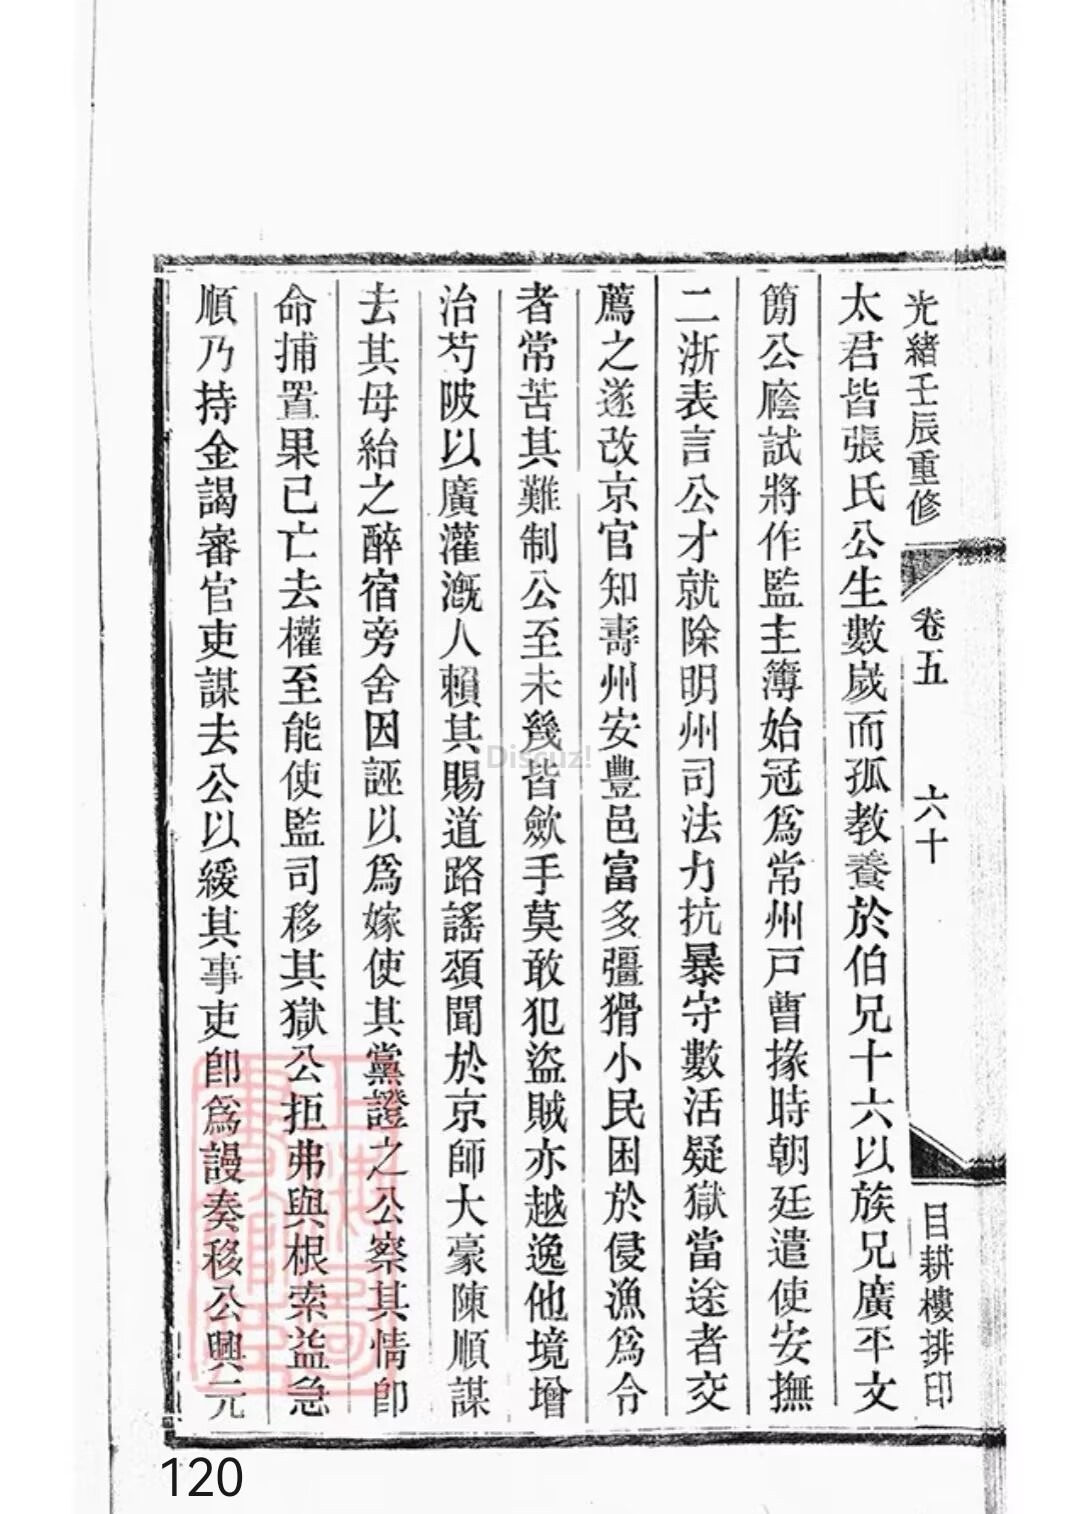 光緒壬辰重修 卷五 六十 目耕樓排印
太君皆張氏公生數歲而孤教養於伯兄十六以族兄廣平文
簡公廕試將作監主簿始冠爲常州戸曹掾時朝廷遣使安撫
二浙表言公才就除明州司法力抗暴守數活疑獄當途者交
薦之遂改京官知壽州安豐邑富多彊猾小民困於侵漁爲令
者常苦其難制公至未幾皆歛手莫敢犯盜賊亦越逸他境增
治芍陂以廣灌漑人賴其賜道路謠頌聞於京師大豪陳順謀
去其母紿之醉宿旁舍因誣以爲嫁使其黨證之公察其情卽
命捕置果已亡去權至能使監司移其獄公拒弗與根索益急
順乃持金謁審官吏謀去公以緩其事吏卽爲謾奏移公興元
Discuz!
120